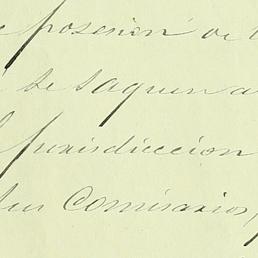 posesion de
se saquen a
jurisdiccion
sus Comisarios,